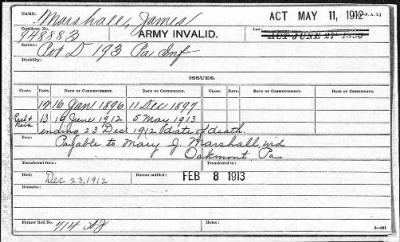 Name: Marshall, James
ACT MAY 11, 1912
Certificate No.: 948883
ARMY INVALID.
ACT JUNE 27 1890
Service: Pvt D 193 Pa Inf
Disability:
ISSUES.
CLASS. RATE. DATE OF COMMENCEMENT. DATE OF CERTIFICATE. CLASS. RATE. DATE OF COMMENCEMENT. DATE OF CERTIFICATE.
12 16 Jan 1896 11 Dec 1897
13 16 June 1912 5 May 1913
ending 23 Dec 1912 (date of death.
Payable to Mary J. Marshall, wid
Oakmont Pa
Transferred from:
Died: Dec 23, 1912
Transferred to:
FEB 8 1913
Remarks: